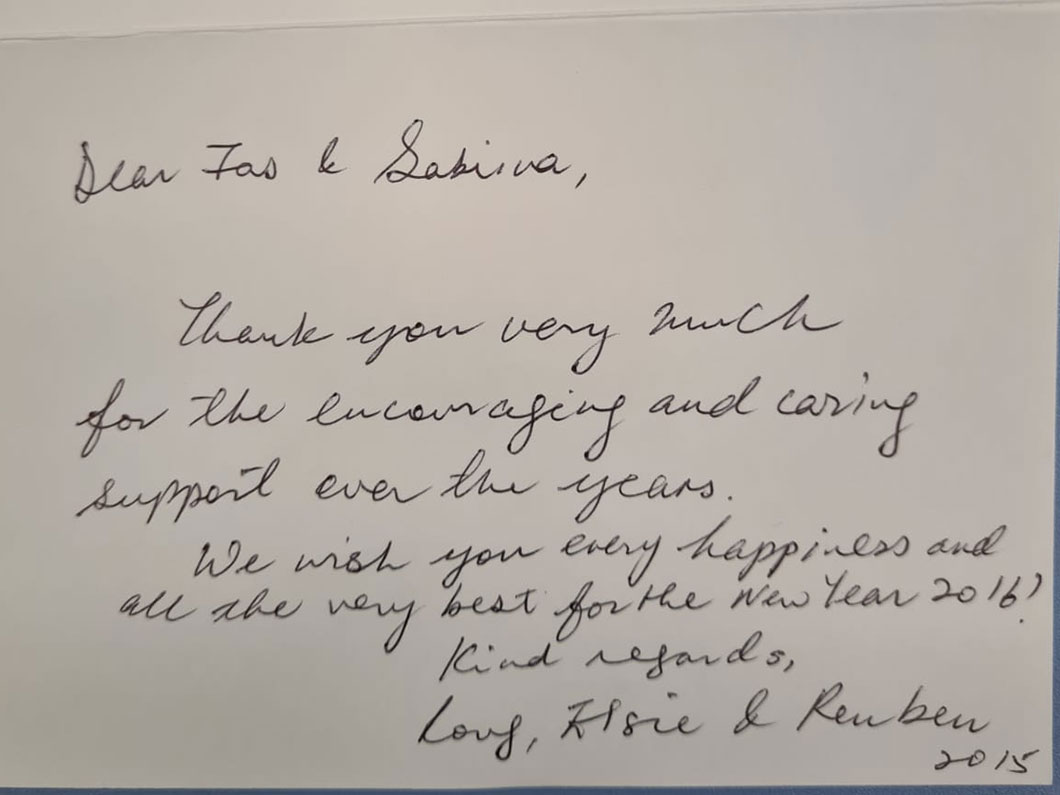 Dear Jas & Sabrina,
Thank you very much
for the encouraging and caring
support over the years.
We wish you every happiness and
all the very best for the New Year 2016!
Kind regards,
Love, Elsie & Reuben
2015